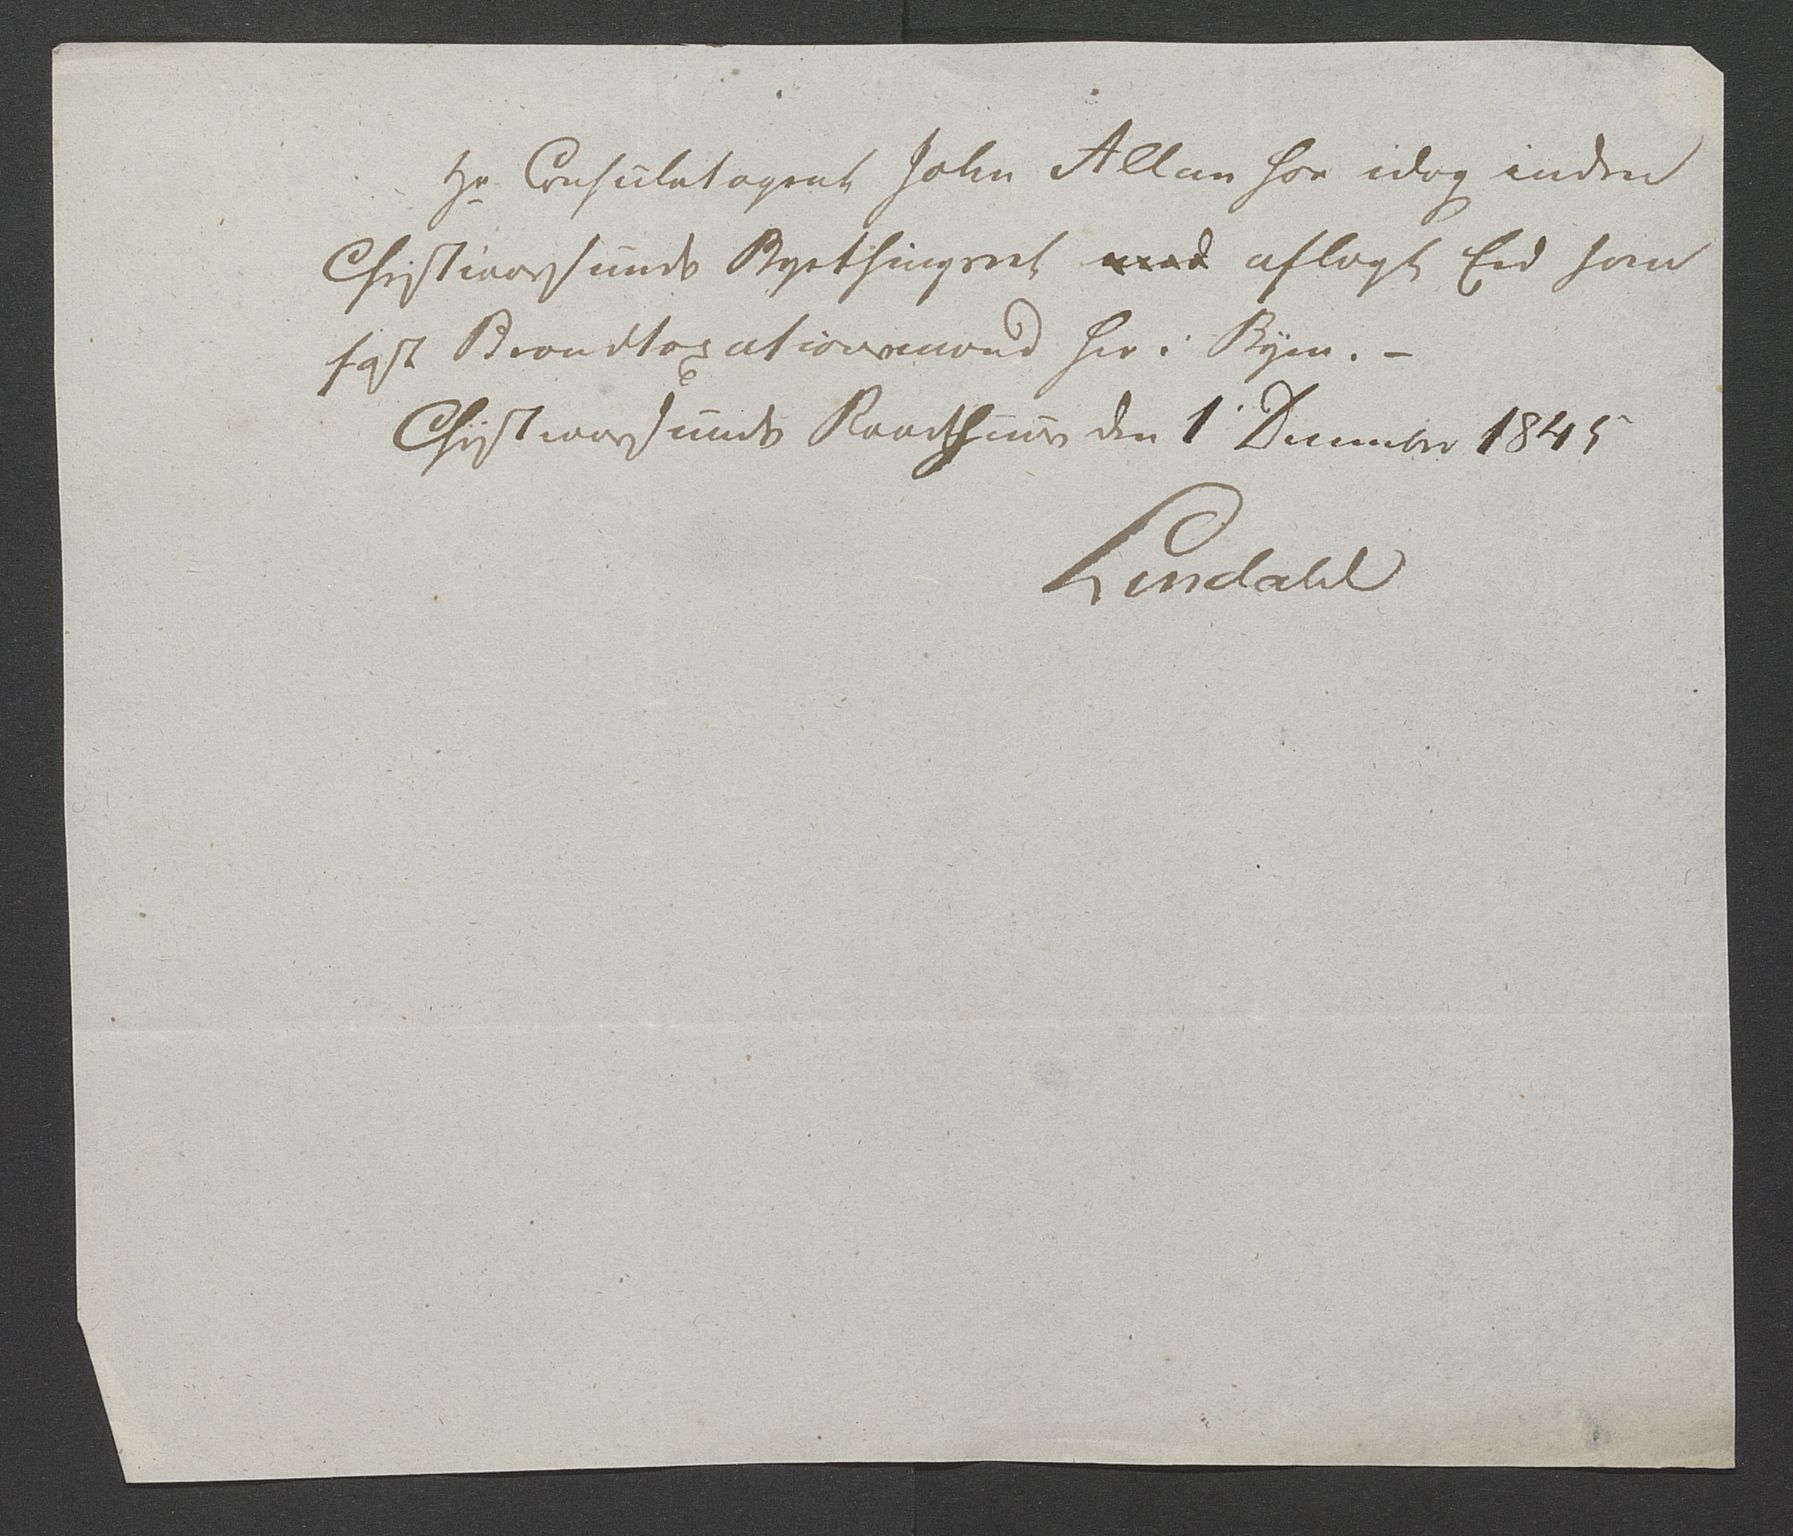 Hr Consulatagent John Allan har idag inden
Christianssunds Byetthingsret med aflagt Eed som
fast Brandtaxationsmand her i Byen. –
Christianssunds Raadhuus den 1' December 1845
Lindahl